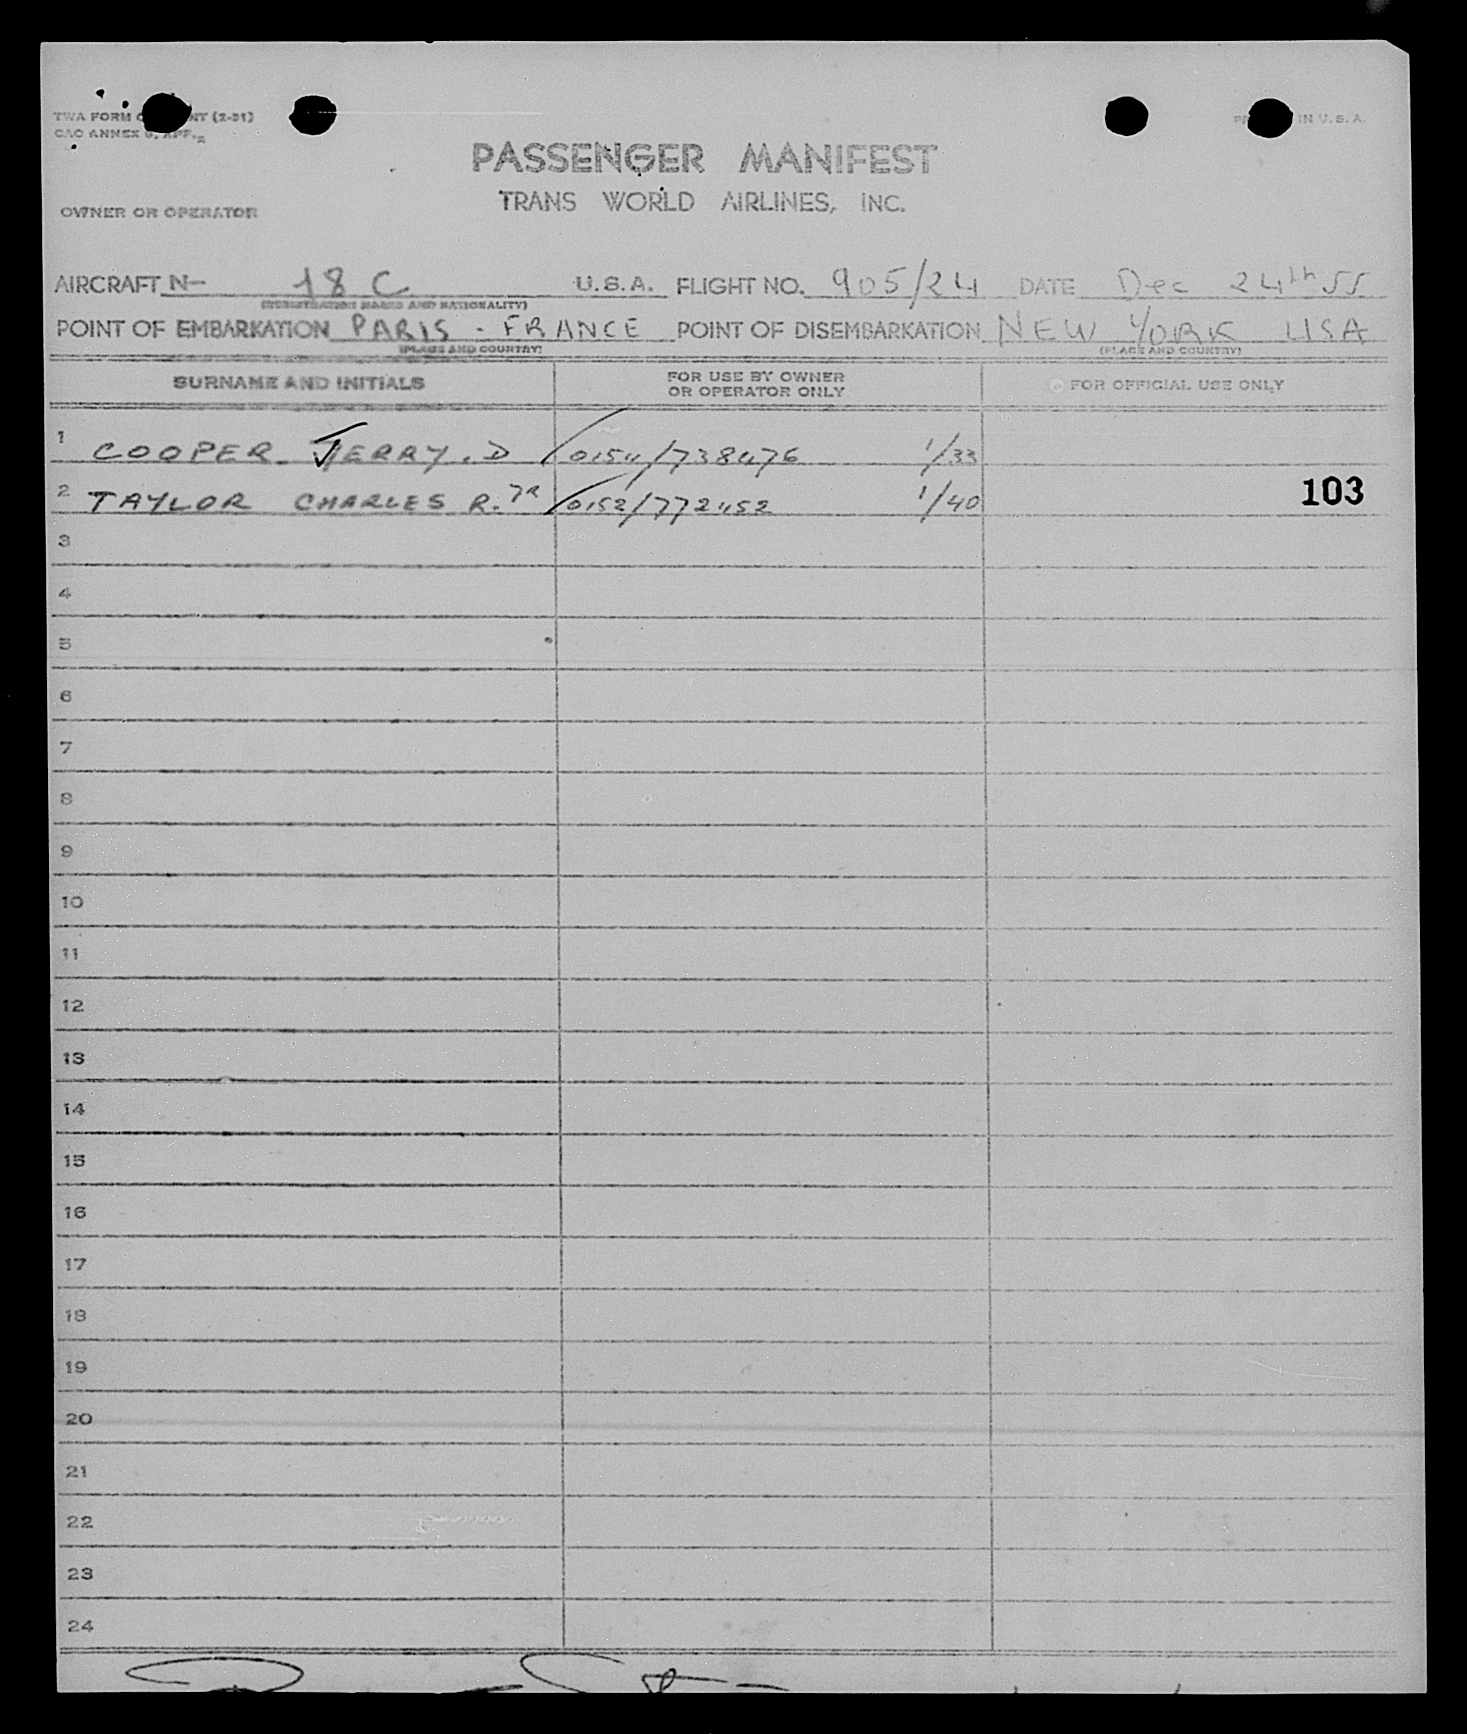 TWA FORM NT (2-51)
CAO ANNEX 9, APP. 2
IN U.S.A.
PASSENGER MANIFEST
TRANS WORLD AIRLINES, INC.
OWNER OR OPERATOR
AIRCRAFT N- 18 C U.S.A. FLIGHT NO. 905/24 DATE Dec 24th 55
(REGISTRATION MARKS AND NATIONALITY)
POINT OF EMBARKATION PARIS - FRANCE POINT OF DISEMBARKATION NEW YORK USA
(PLACE AND COUNTRY) (PLACE AND COUNTRY)
SURNAME AND INITIALS FOR USE BY OWNER OR OPERATOR ONLY FOR OFFICIAL USE ONLY
1 COOPER JERRY. D 0154/738476 1/33
2 TAYLOR CHARLES R. JR 0152/772452 1/40 103
3
4
5
6
7
8
9
10
11
12
13
14
15
16
17
18
19
20
21
22
23
24